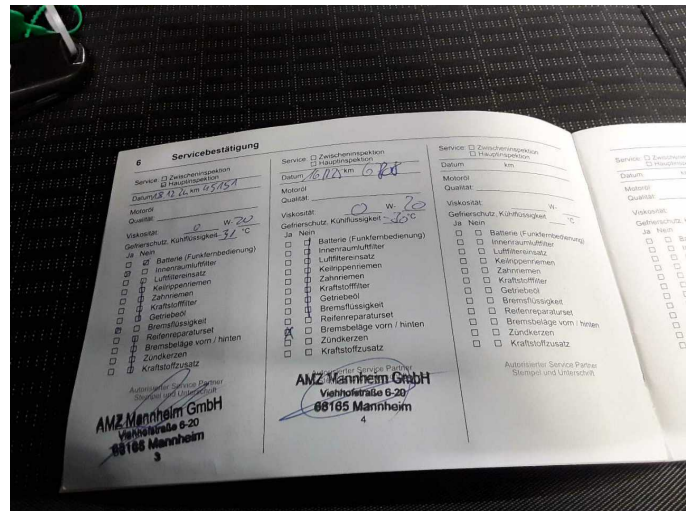 6 Servicebestätigung
Service: Zwischeninspektion
Hauptinspektion
Datum 18 12 km 45151
Motoröl
Qualität
Viskosität 0 W- 20
Gefrierschutz, Kühlflüssigkeit -31 °C
Ja Nein
Batterie (Funkfernbedienung)
Innenraumluftfilter
Luftfiltereinsatz
Keilrippenriemen
Zahnriemen
Kraftstofffilter
Getriebeöl
Bremsflüssigkeit
Reifenreparaturset
Bremsbeläge vorn / hinten
Zündkerzen
Kraftstoffzusatz
Autorisierter Service Partner
Stempel und Unterschrift
AMZ Mannheim GmbH
Viehhofstraße 6-20
68165 Mannheim
3
Service: Zwischeninspektion
Hauptinspektion
Datum km
Motoröl
Qualität
Viskosität 0 W- 20
Gefrierschutz, Kühlflüssigkeit °C
Ja Nein
Batterie (Funkfernbedienung)
Innenraumluftfilter
Luftfiltereinsatz
Keilrippenriemen
Zahnriemen
Kraftstofffilter
Getriebeöl
Bremsflüssigkeit
Reifenreparaturset
Bremsbeläge vorn / hinten
Zündkerzen
Kraftstoffzusatz
Autorisierter Service Partner
AMZ Mannheim GmbH
Viehhofstraße 6-20
68165 Mannheim
4
Service: Zwischeninspektion
Hauptinspektion
Datum km
Motoröl
Qualität
Viskosität W-
Gefrierschutz, Kühlflüssigkeit °C
Ja Nein
Batterie (Funkfernbedienung)
Innenraumluftfilter
Luftfiltereinsatz
Keilrippenriemen
Zahnriemen
Kraftstofffilter
Getriebeöl
Bremsflüssigkeit
Reifenreparaturset
Bremsbeläge vorn / hinten
Zündkerzen
Kraftstoffzusatz
Autorisierter Service Partner
Stempel und Unterschrift
Service:
Datum
Motoröl
Qualität
Viskosität
Gefrierschutz
Ja Nein